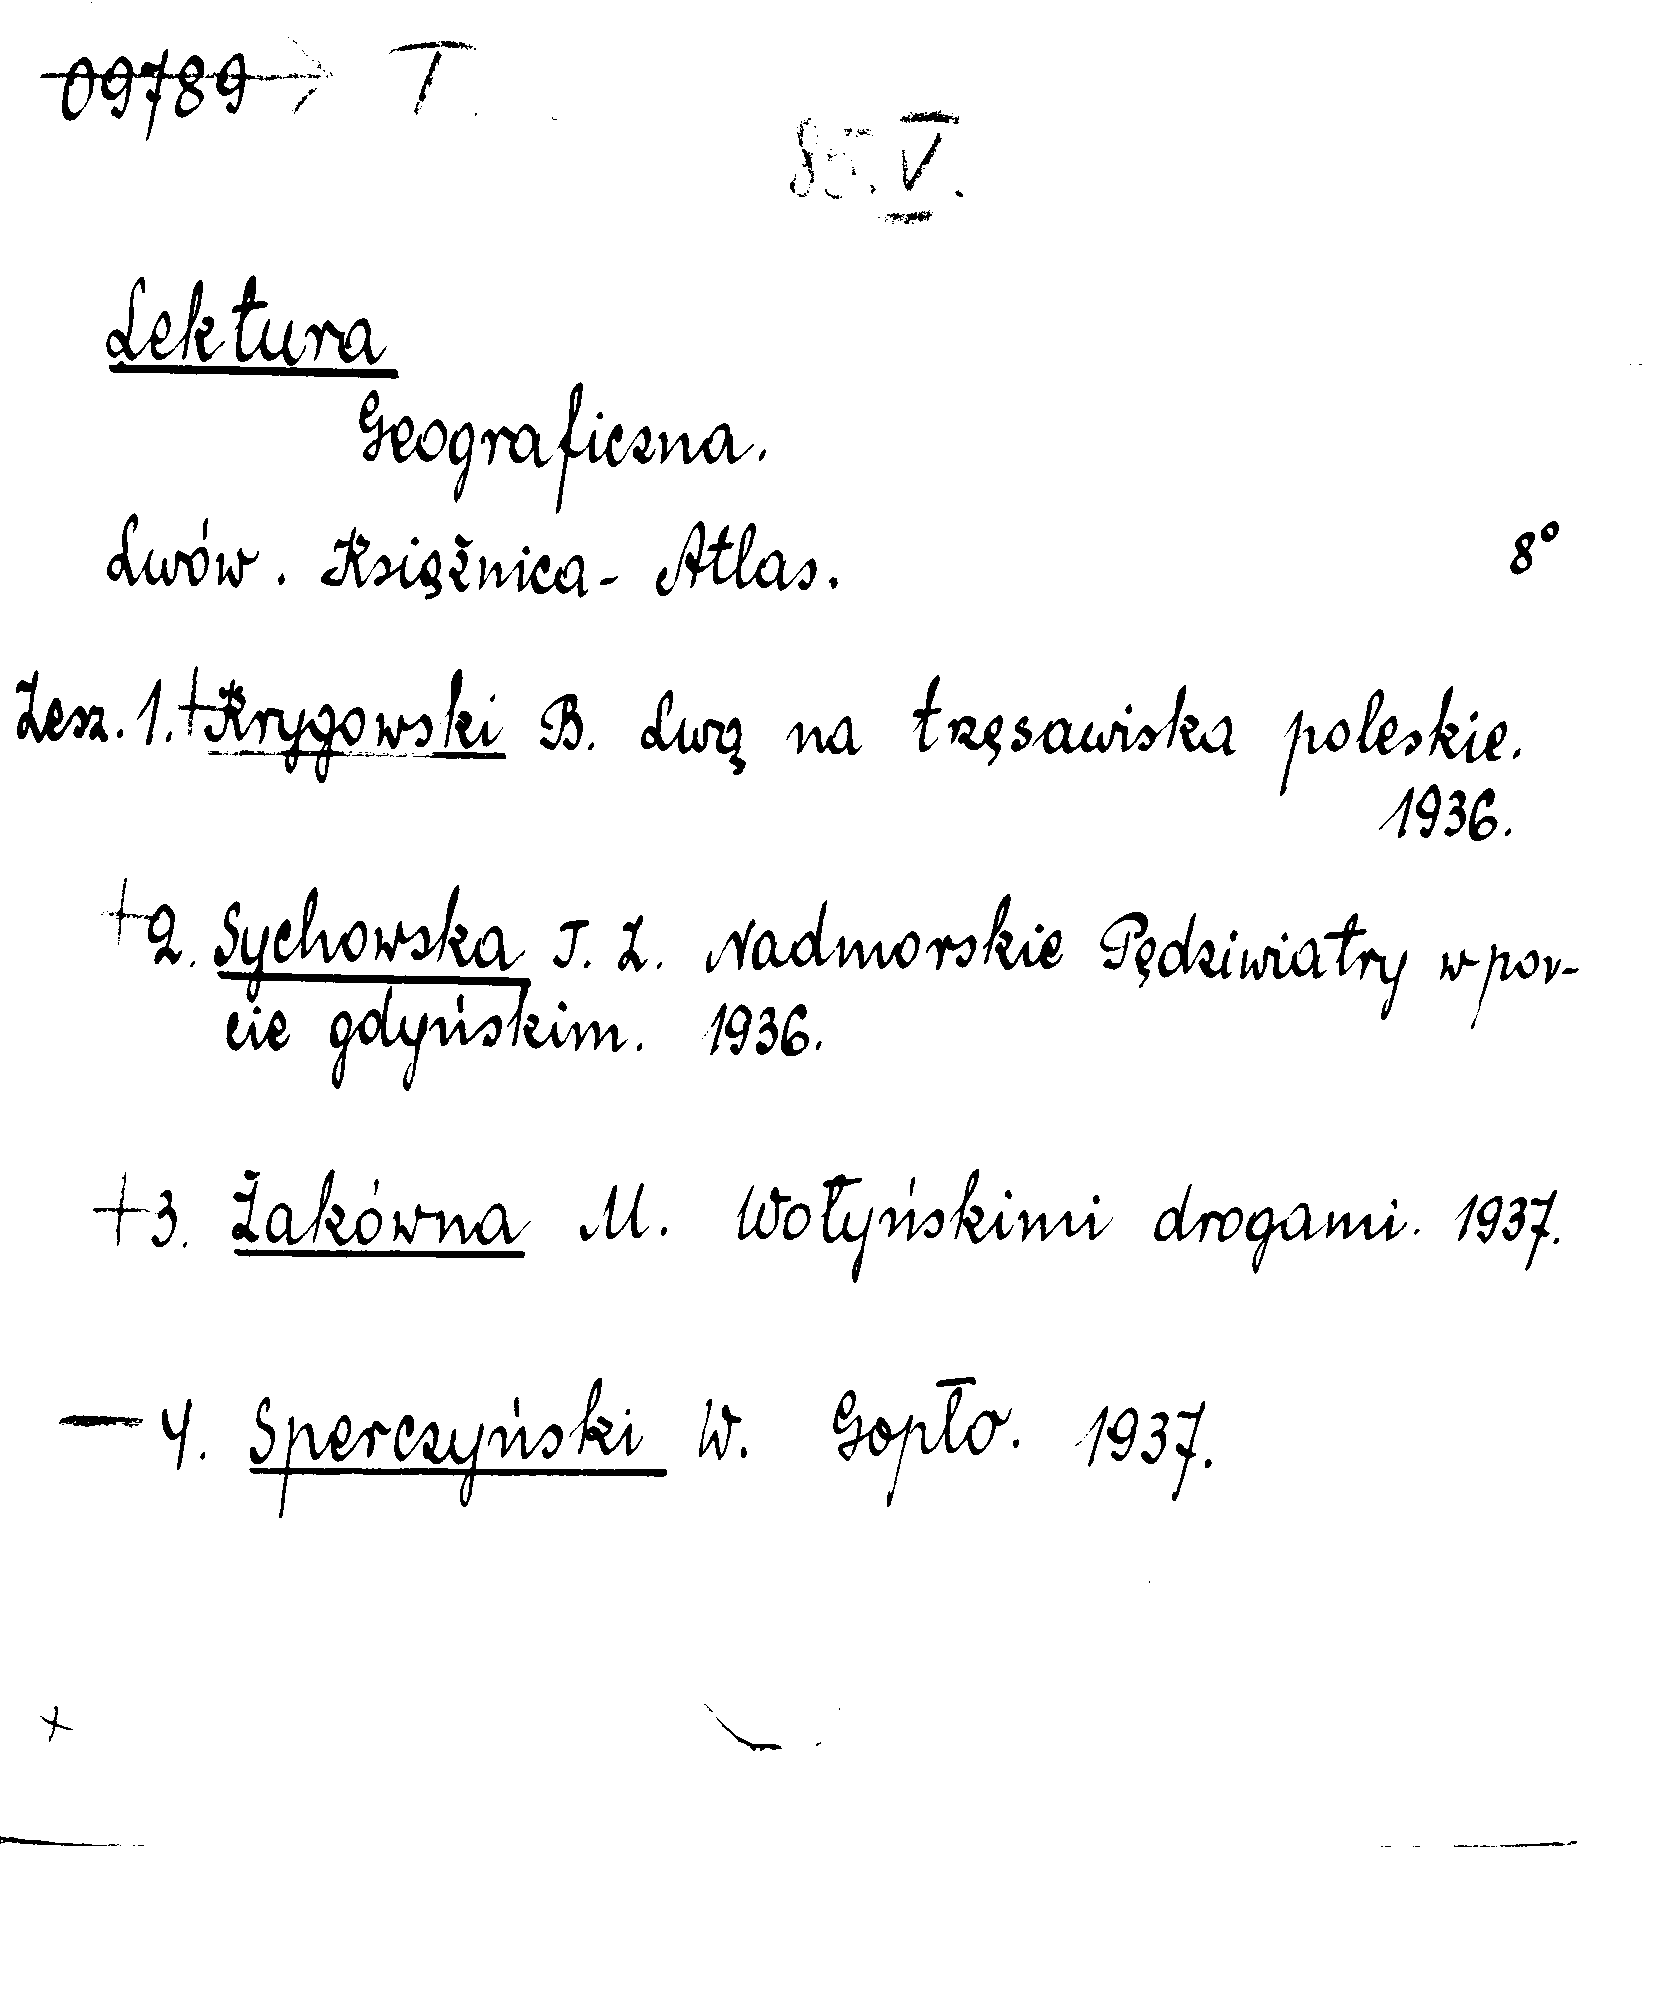 09789 → T
85.V.
Lektura
Geograficzna.
Lwów. Książnica-Atlas. 8°
Zesz. 1.+Krygowski B. Lwą na trzęsawiska poleskie.
1936.
+2. Sychowska J. Z. Nadmorskie Pędziwiatry w por-
cie gdyńskim. 1936.
+3. Żakówna M. Wołyńskimi drogami. 1937.
— 4. Sperczyński W. Gopło. 1937.